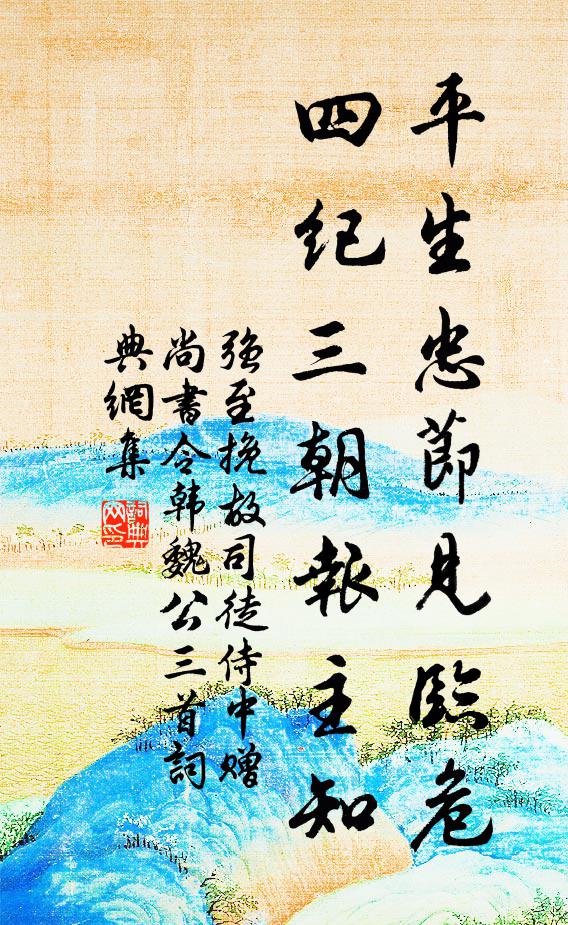 平生忠節見臨危
四纪三朝報主知
强至挽故司徒侍中赠
尚書令韩魏公三首詞
典網集
詞典
网印